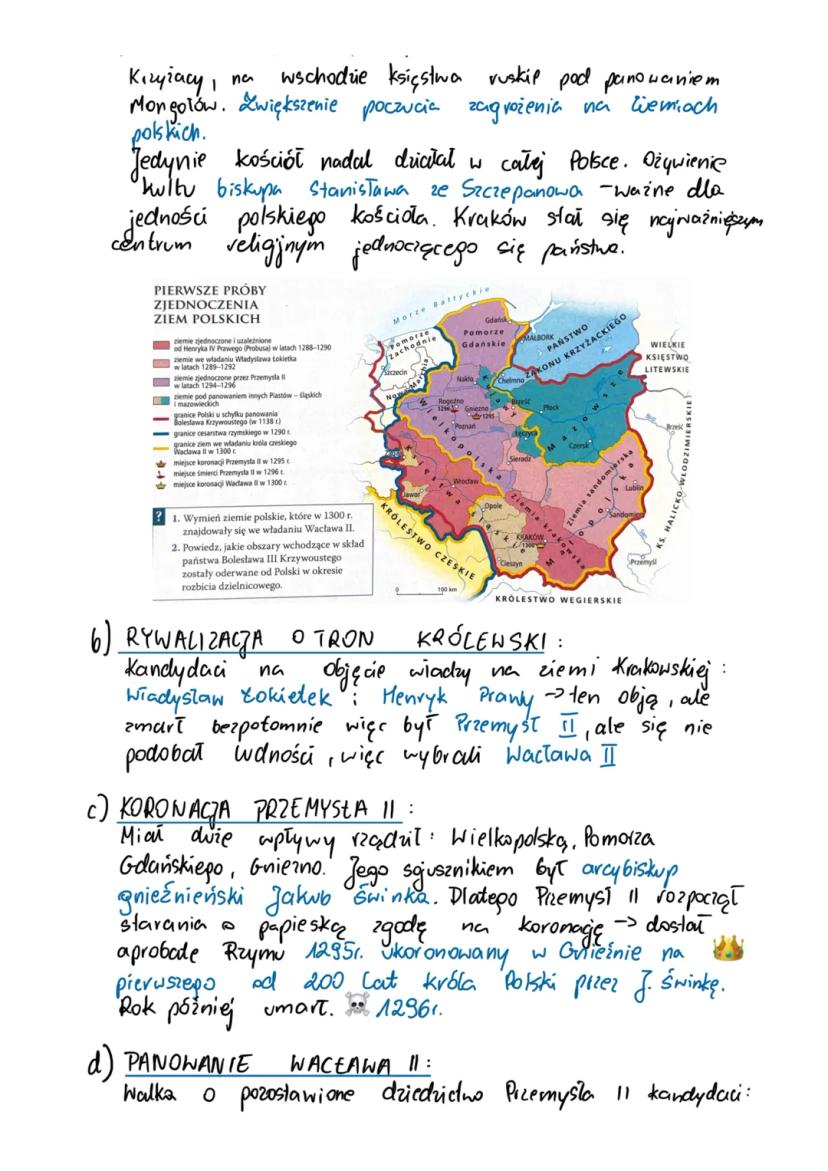 Krzyżacy, na wschodzie księstwa ruskie pod panowaniem
Mongołów. Zwiększenie poczucia zagrożenia na ziemiach
polskich.
Jedynie kościół nadal działał w całej Polsce. Ożywienie
kultu biskupa Stanisława ze Szczepanowa - ważne dla
jedności polskiego kościoła. Kraków stał się najważniejszym
centrum religijnym jednoczącego się państwa.
PIERWSZE PRÓBY
ZJEDNOCZENIA
ZIEM POLSKICH
ziemie zjednoczone i uzależnione
od Henryka IV Prawego (Probusa) w latach 1288–1290
ziemie we władaniu Władysława Łokietka
w latach 1289–1292
ziemie zjednoczone przez Przemysła II
w latach 1294–1296
ziemie pod panowaniem innych Piastów – śląskich
i mazowieckich
granice Polski u schyłku panowania
Bolesława Krzywoustego (w 1138 r.)
granice cesarstwa rzymskiego w 1290 r.
granice ziem we władaniu króla czeskiego
Wacława II w 1300 r.
miejsce koronacji Przemysła II w 1295 r.
miejsce śmierci Przemysła II w 1296 r.
miejsce koronacji Wacława II w 1300 r.
? 1. Wymień ziemie polskie, które w 1300 r.
znajdowały się we władaniu Wacława II.
2. Powiedz, jakie obszary wchodzące w skład
państwa Bolesława III Krzywoustego
zostały oderwane od Polski w okresie
rozbicia dzielnicowego.
Morze Bałtyckie
Gdańsk
Pomorze
Gdańskie
MALBORK
PAŃSTWO
ZAKONU KRZYŻACKIEGO
WIELKIE
KSIĘSTWO
LITEWSKIE
Pomorze
Zachodnie
Szczecin
Nowa Marchia
Nakło
Chełmno
Rogoźno
1296
Gniezno
1295
Brześć
Płock
Poznań
Wielkopolska
Łęczyca
Mazowsze
Czersk
Brześć
Sieradz
Wrocław
Jawor
Księstwa
Opole
Śląskie
Ziemia sandomierska
Lublin
Sandomierz
Ziemia krakowska
Małopolska
KRAKÓW
1300
Cieszyn
Przemyśl
KS. HALICKO-WŁODZIMIERSKIE
KRÓLESTWO CZESKIE
KRÓLESTWO WĘGIERSKIE
0 100 km
b) RYWALIZACJA O TRON KRÓLEWSKI:
Kandydaci na objęcie władzy na ziemi Krakowskiej:
Władysław Łokietek i Henryk Prawy → ten objął, ale
zmarł bezpotomnie więc był Przemysł II, ale się nie
podobał ludności, więc wybrali Wacława II
c) KORONACJA PRZEMYSŁA II:
Miał duże wpływy rządził: Wielkopolską, Pomorza
Gdańskiego, Gniezno. Jego sojusznikiem był arcybiskup
gnieźnieński Jakub Świnka. Dlatego Przemysł II rozpoczął
starania o papieską zgodę na koronację → dostał
aprobatę Rzymu 1295r. ukoronowany w Gnieźnie na 👑
pierwszego od 200 lat króla Polski przez J. Świnkę.
Rok później umarł. ☠️ 1296r.
d) PANOWANIE WACŁAWA II:
Walka o pozostawione dziedzictwo Przemysła II kandydaci: